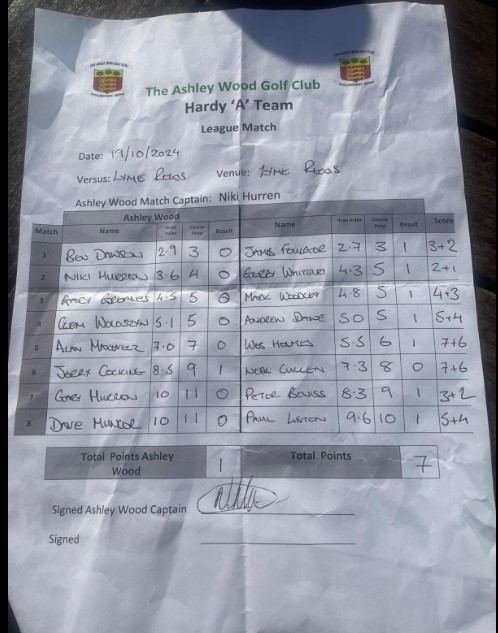 The Ashley Wood Golf Club
Hardy ‘A’ Team
League Match
Date: 19/10/2024
Versus: LYME REGIS Venue: LYME REGIS
Ashley Wood Match Captain: Niki Hurren
Ashley Wood
Match Name Hcap Index Course Hcap Result Name Hcap Index Course Hcap Result Score
1 BEN DAWSON 2.9 3 0 JAMES 2.7 3 1 3+2
2 NIKI HURREN 3.6 4 0 GERRY 4.3 5 1 2+1
3 4.5 5 0 MARK 4.8 5 1 4+3
4 5.1 5 0 ANDREW 5.0 5 1 5+4
5 ALAN 7.0 7 0 WES HOLMES 5.5 6 1 7+6
6 JERRY COCKING 8.5 9 1 NEAL CULLEN 7.3 8 0 7+6
7 HURREN 10 11 0 PETER 8.3 9 1 3+2
8 DAVE 10 11 0 PAUL LISTON 9.6 10 1 5+4
Total Points Ashley Wood 1 Total Points 7
Signed Ashley Wood Captain
Signed